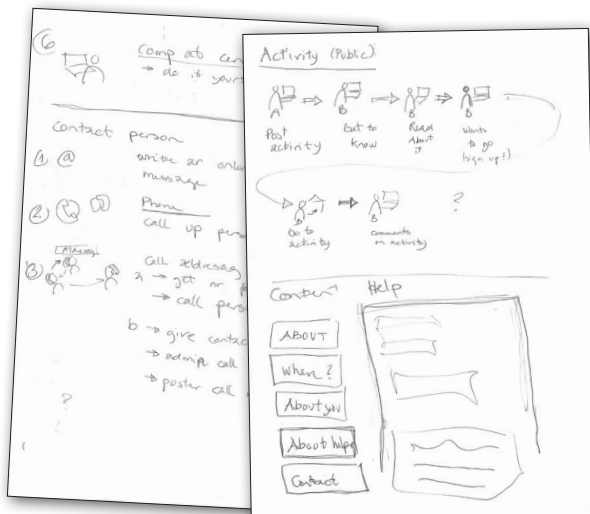 6
Comp at cen
→ do it your
Contact person
1. @ write an onli
message
2. Phone
call up pers
3
Call addressing
a → get nr
→ call pers
b → give contac
→ admin call
→ poster call
?
Activity (Public)
A B B B
Post activity
Get to know
Read About it
Wants to go
(sign up?)
B B ?
Go to activity
comments on activity
Content Help
ABOUT
Where?
About you
About help
Contact